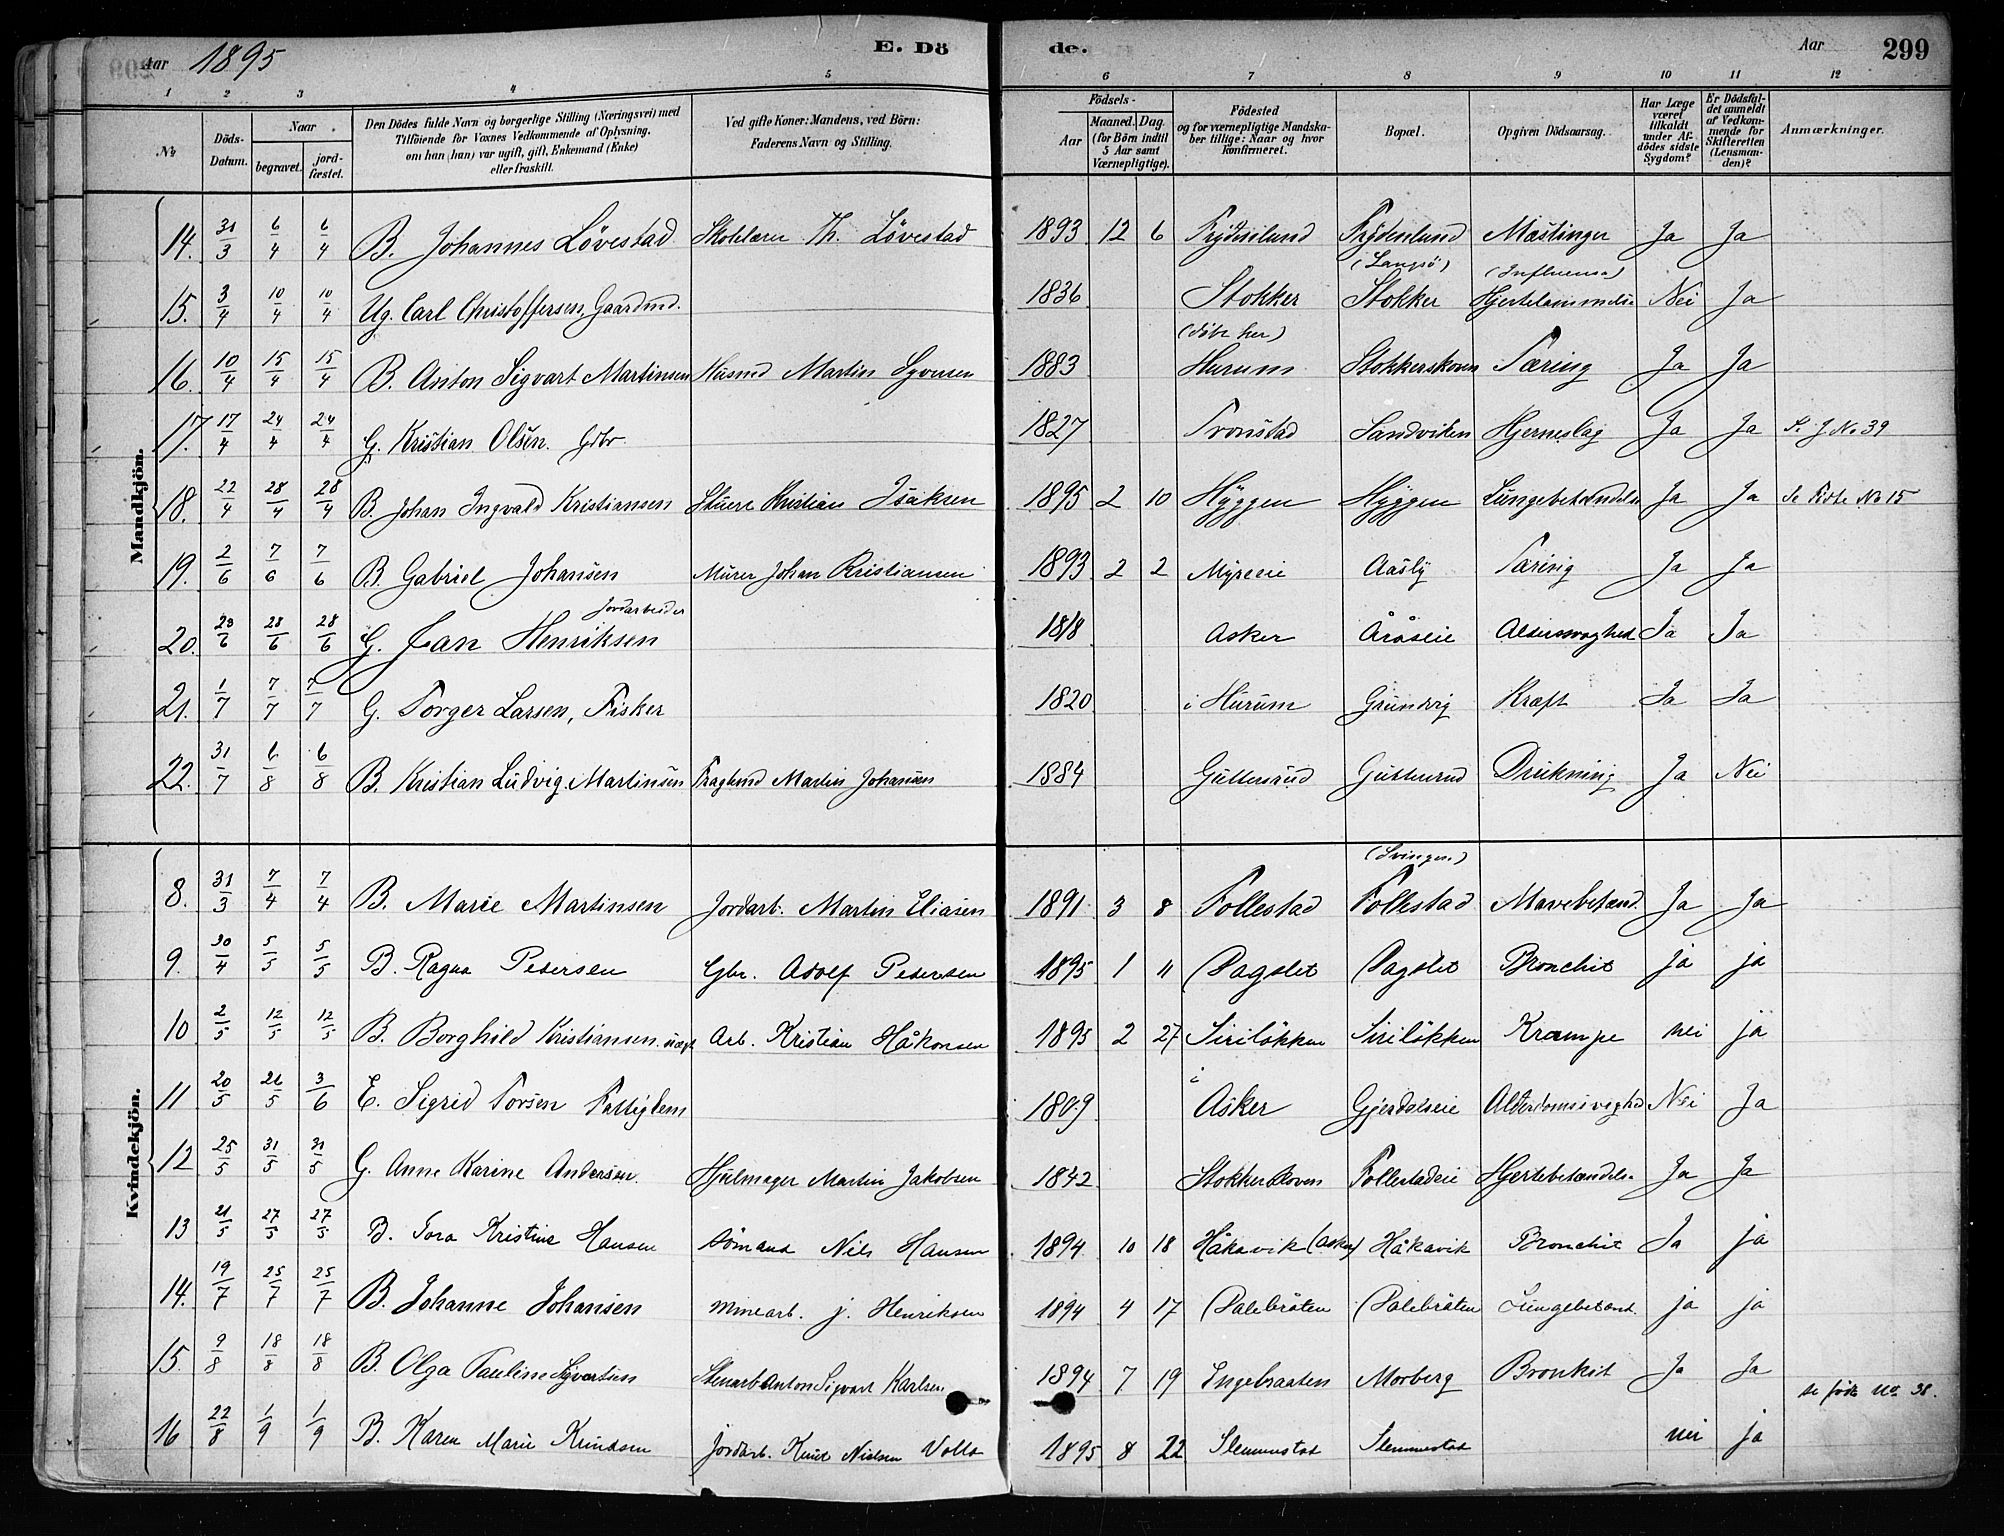 Aar 1895 E. Döde. Aar 299
1 2 3 4 5 6 7 8 9 10 11 12
No. Döds-Datum. Naar begravet. jordfæstet. Den Dödes fulde Navn og borgerlige Stilling (Næringsvei) med Tilföiende for Voxnes Vedkommende af Oplysning, om han (hun) var ugift, gift, Enkemand (Enke) eller fraskilt. Ved gifte Koner: Mandens, ved Börn: Faderens Navn og Stilling. Födsels- Aar Maaned. Dag (for Börn indtil 5 Aar samt Værnepligtige). Födested og for værnepligtige Mandskaber tillige: Naar og hvor konfirmeret. Bopæl. Opgiven Dödsaarsag. Har Læge været tilkaldt under Afdödes sidste Sygdom? Er Dödsfaldet anmeldt af Vedkommende for Skifteretten (Lensmanden)? Anmærkninger.
Mandkjön.
14. 31/3 6/4 6/4 B. Johannes Lövestad Skolelærer Th. Lövestad 1893 12 6 Frydenlund Frydenlund Mæslinger Ja Ja
15. 3/4 10/4 10/4 Ug. Carl Christoffersen, Gaardmd. 1836 Stokker (döbt her) (Langsö) Stokker (Influensa) Hjertelammelse Nei Ja
16. 10/4 15/4 15/4 B. Anton Sigvart Martinsen Husmd Martin Syversen 1883 Hurum Stokkerskoven Tæring Ja Ja
17. 17/4 24/4 24/4 G. Kristian Olsen. Gbr 1827 Tronstad Sandviken Hjerneslag Ja Ja Se J No 39
18. 22/4 28/4 28/4 B. Johan Ingvald Kristiansen Stuere Kristian Isaksen 1895 2 10 Hyggen Hyggen Lungebetændelse Ja Ja Se Födte No 15
19. 2/6 7/6 7/6 B. Gabriel Johansen Murer Johan Kristiansen 1893 2 2 Myreeie Aasly Tæring Ja Ja
20. 23/6 28/6 28/6 G. Jan Henriksen Jordarbeider 1818 Asker Åråseie Aldersvaghed Ja Ja
21. 1/7 7/7 7/7 G. Torger Larsen, Fisker 1820 i Hurum Grundvig Kræft Ja Ja
22. 31/7 6/8 6/8 B. Kristian Ludvig Martinsen Martin Johansen 1884 Guttersrud Guttersrud Drukning Ja Nei
Kvindekjön.
8. 31/3 7/4 7/4 B. Marie Martinsen Jordarb. Martin Eliasen 1891 3 8 Follestad (Svingen) Follestad Mavebetænd. Ja Ja
9. 30/4 5/5 5/5 B. Ragna Pedersen Gbr. Adolf Pedersen 1895 1 11 Dagslet Dagslet Bronchit ja ja
10 2/5 12/5 12/5 B. Borghild Kristiansen Arb. Kristian Håkonsen 1895 2 27 Siriløkken Siriløkken Krampe nei ja
11 20/5 26/5 3/6 E. Sigrid Torsen Fattiglem 1809 i Asker Gjerdalseie Alderdomssvaghed Nei Ja
12 25/5 31/5 31/5 G. Anne Karine Andersen Hjulmager Martin Jakobsen 1842 Stokkerskoven Follestadeie Hjertebetændelse Ja Ja
13 21/5 27/5 27/5 B. Tora Kristine Hansen Sömand Nils Hansen 1894 10 18 Håkavik (Asker) Håkavik Bronchit Ja ja
14. 19/7 25/7 25/7 B. Johanne Johansen Minearb. J. Henriksen 1894 4 17 Dalebråten Dalebråten Lungebetænd. ja ja
15. 9/8 18/8 18/8 B. Olga Pauline Sigvartsen Stenarb Anton Sigvart Karlsen 1894 7 19 Engebraaten Morberg Bronkit Ja Ja
16 22/8 1/9 1/9 B. Karen Marie Knudsen Jordarb. Knud Nielsen Volla 1895 8 22 Slemmestad Slemmestad nei ja se födte no. 38.